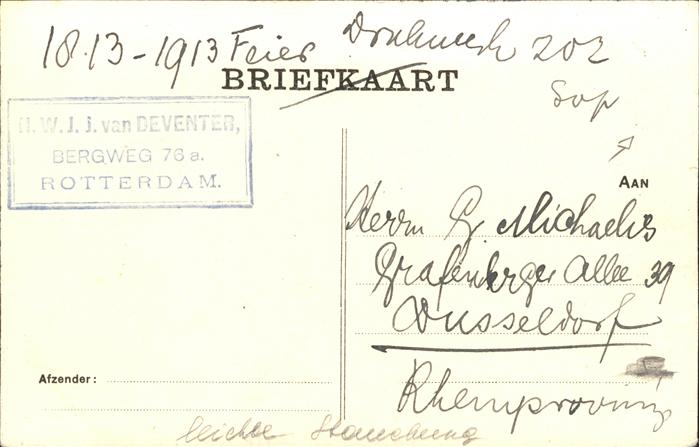 1813-1913 Feier Drukwerk 202
BRIEFKAART
Sop
H. W. J. J. van DEVENTER,
BERGWEG 76a.
ROTTERDAM.
AAN
Herrn G. Michaelis
Grafenberger Allee 39
Dusseldorf
Afzender:
Rheinprovinz
leichte Stauchung